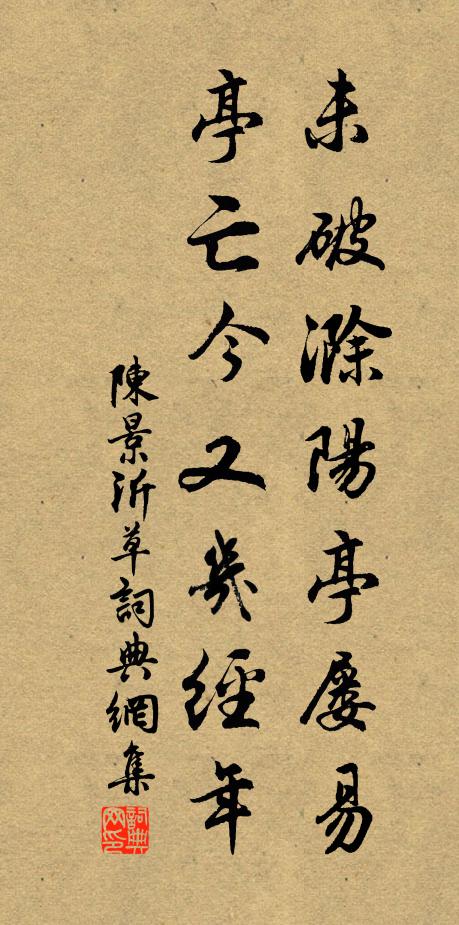 未破滁陽亭屡易
亭亡今又幾經年
陳景沂草詞典網集
詞典網印